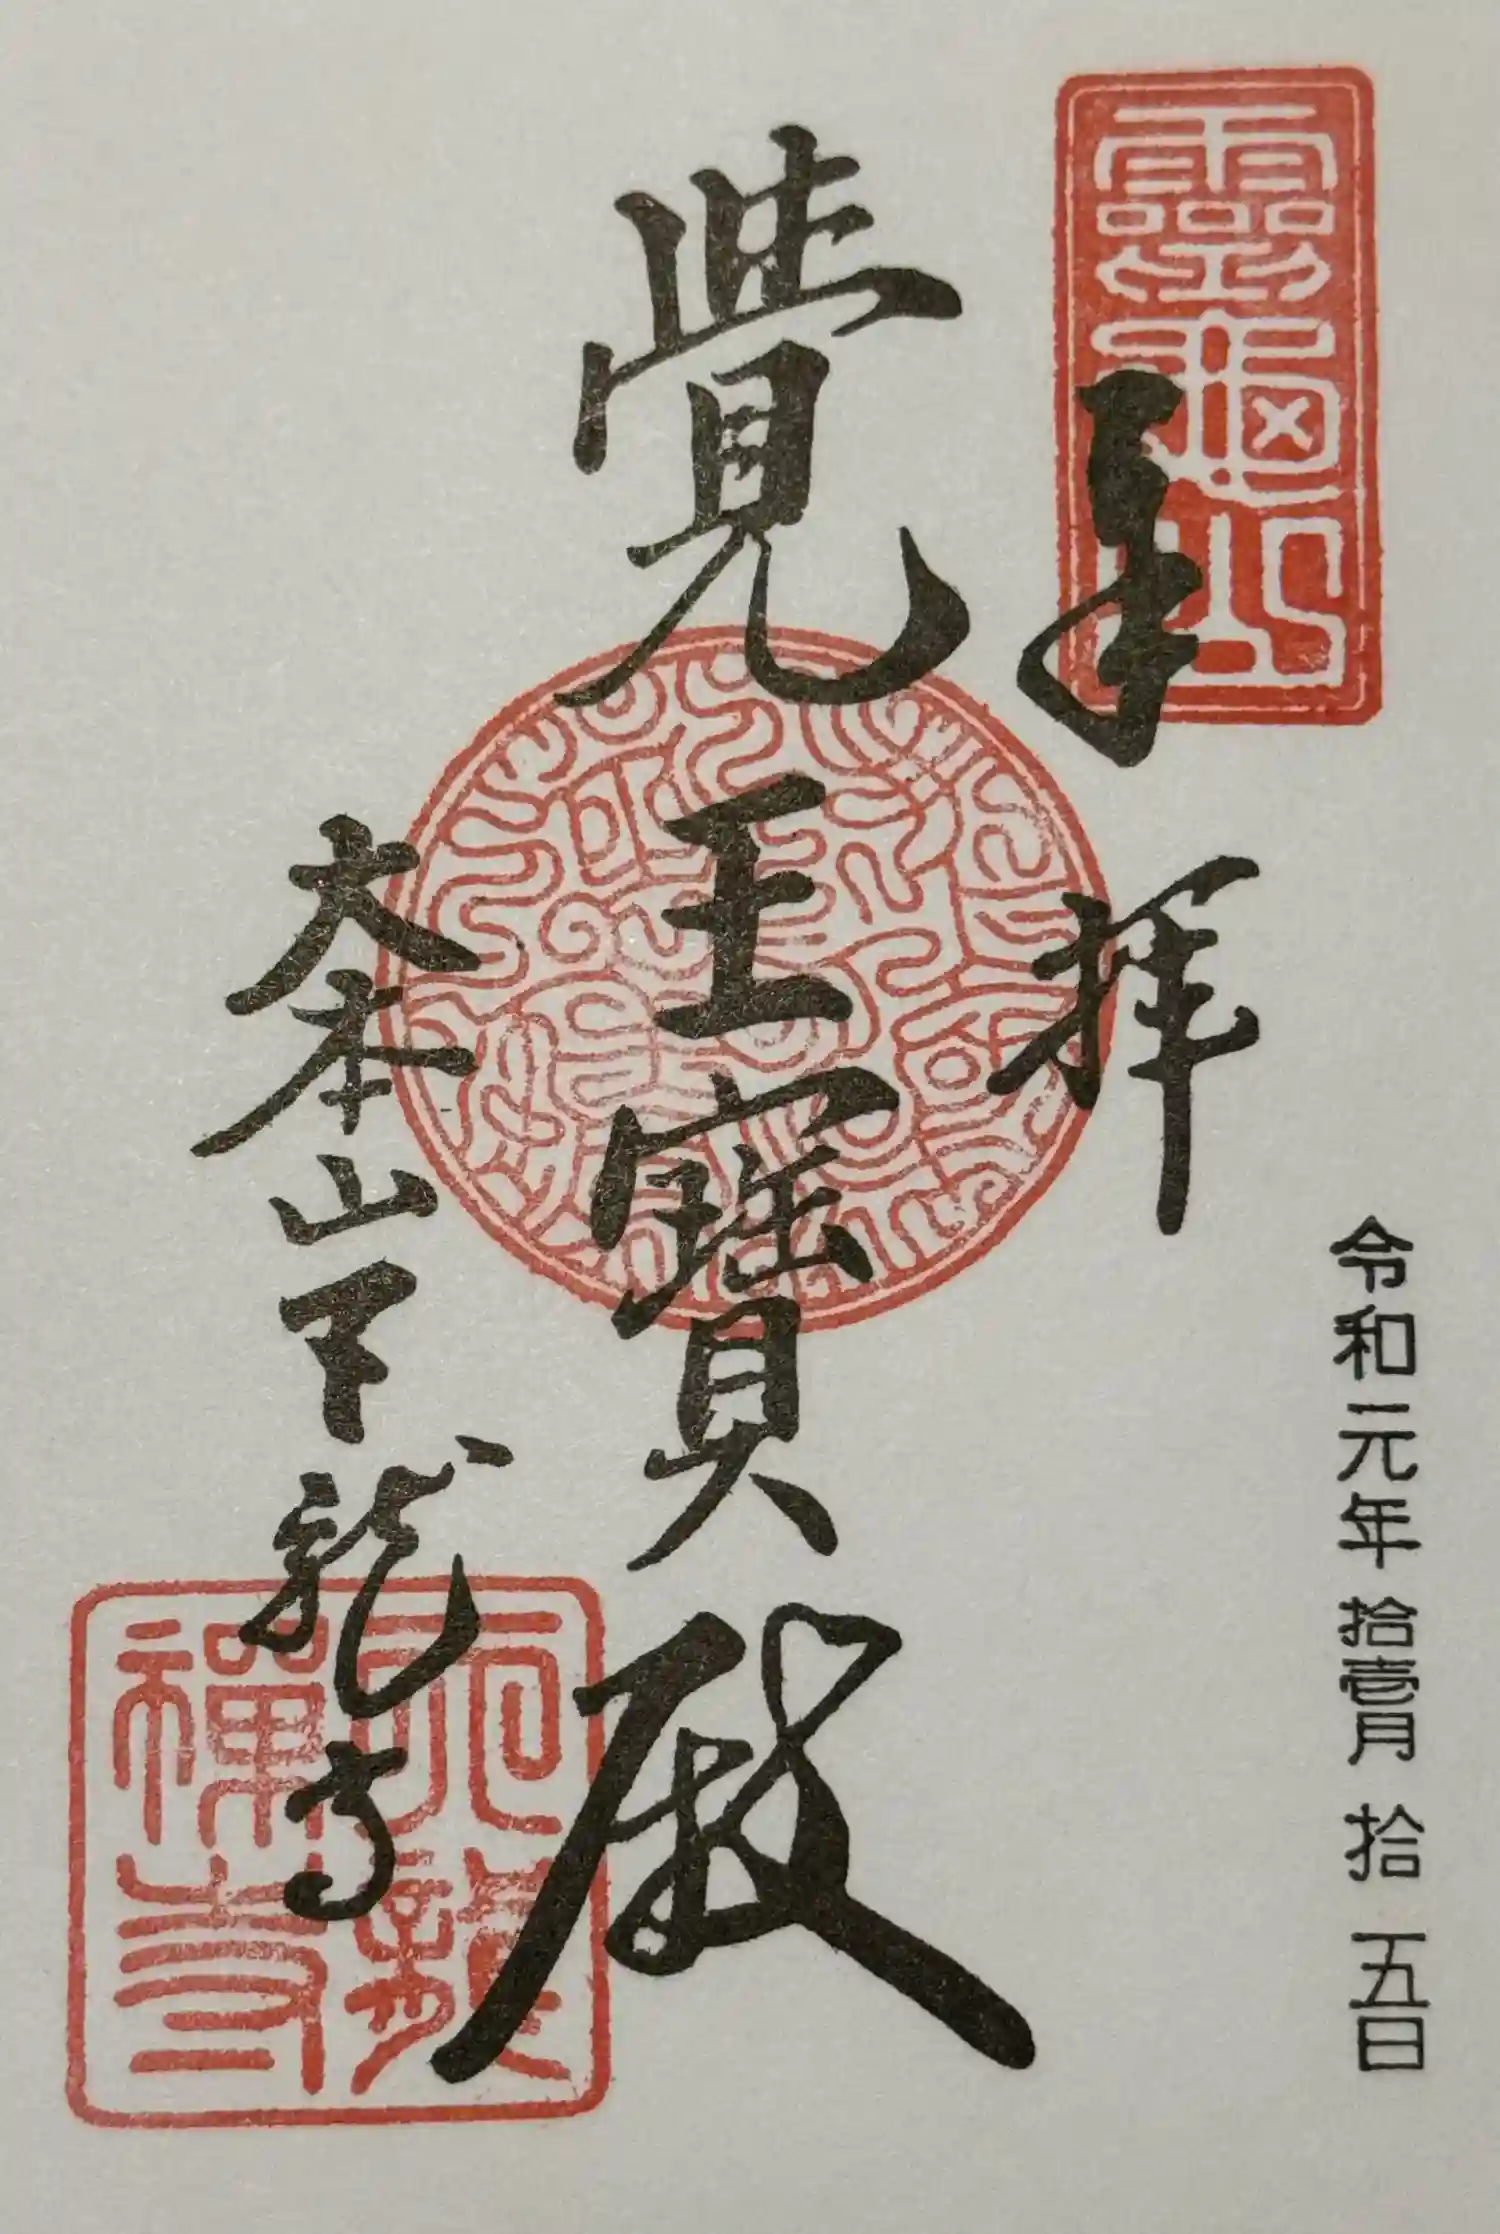 靈龜山
奉拝
令和元年拾壹月拾五日
覺王寳殿
大本山天龍寺
天龍
禅寺